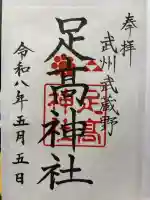 奉拝
武州 武蔵野
足髙神社
足髙
神社
令和八年五月五日